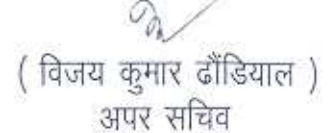 ( विजय कुमार ढौंडियाल )
अपर सचिव